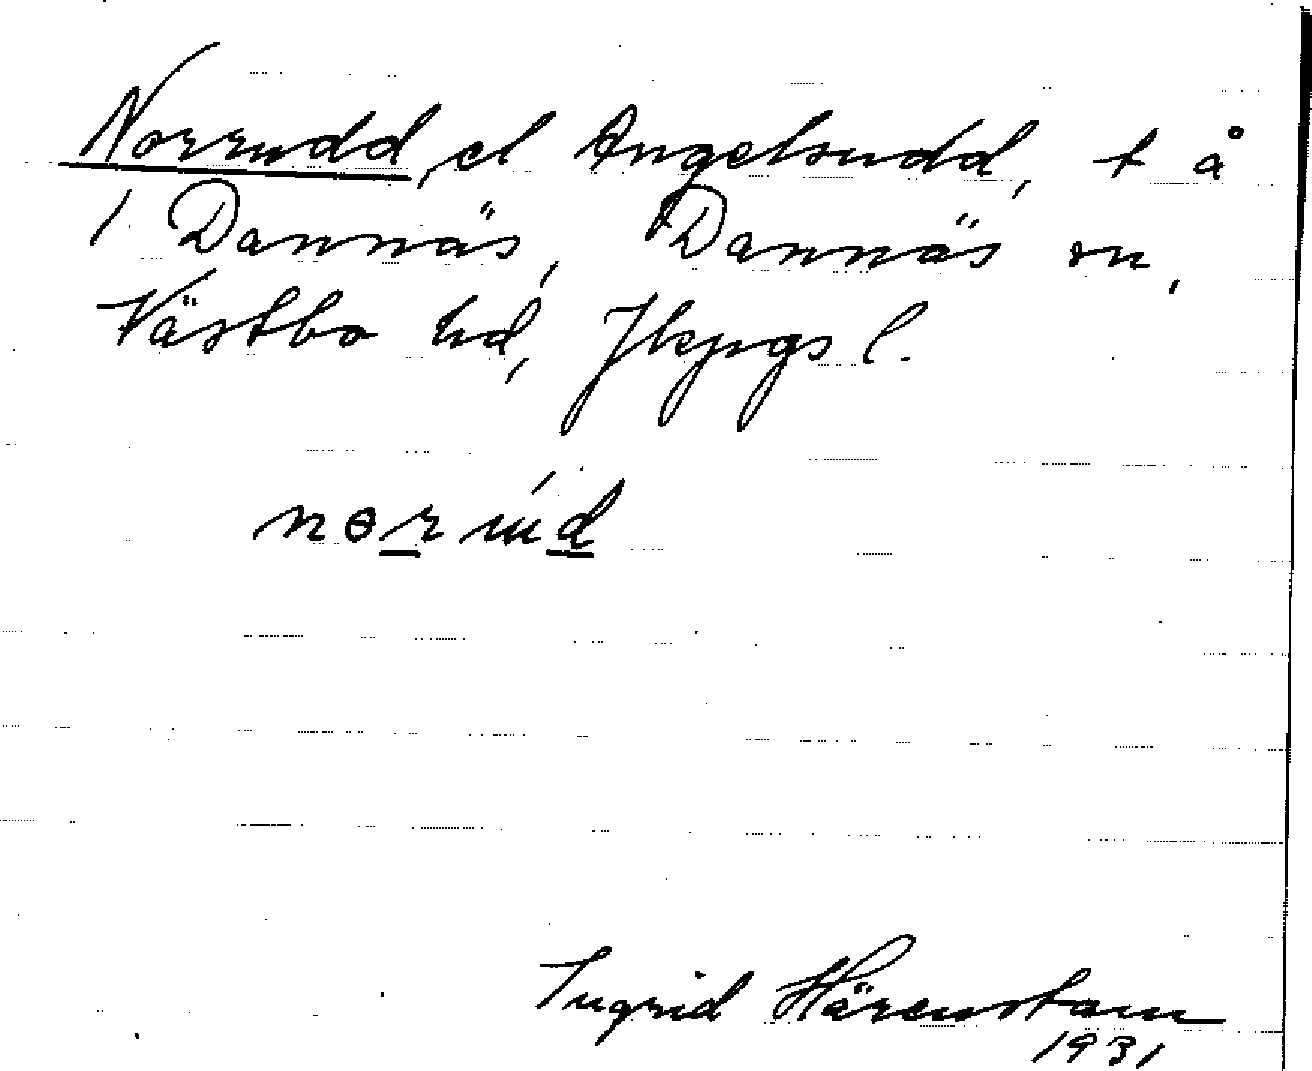 Norrudd, el Angelsudd, t å
1 Dannäs, Dannäs sn,
Västbo hd, Jkpgs l.
nɵr úd
Ingrid Härenstam
1931